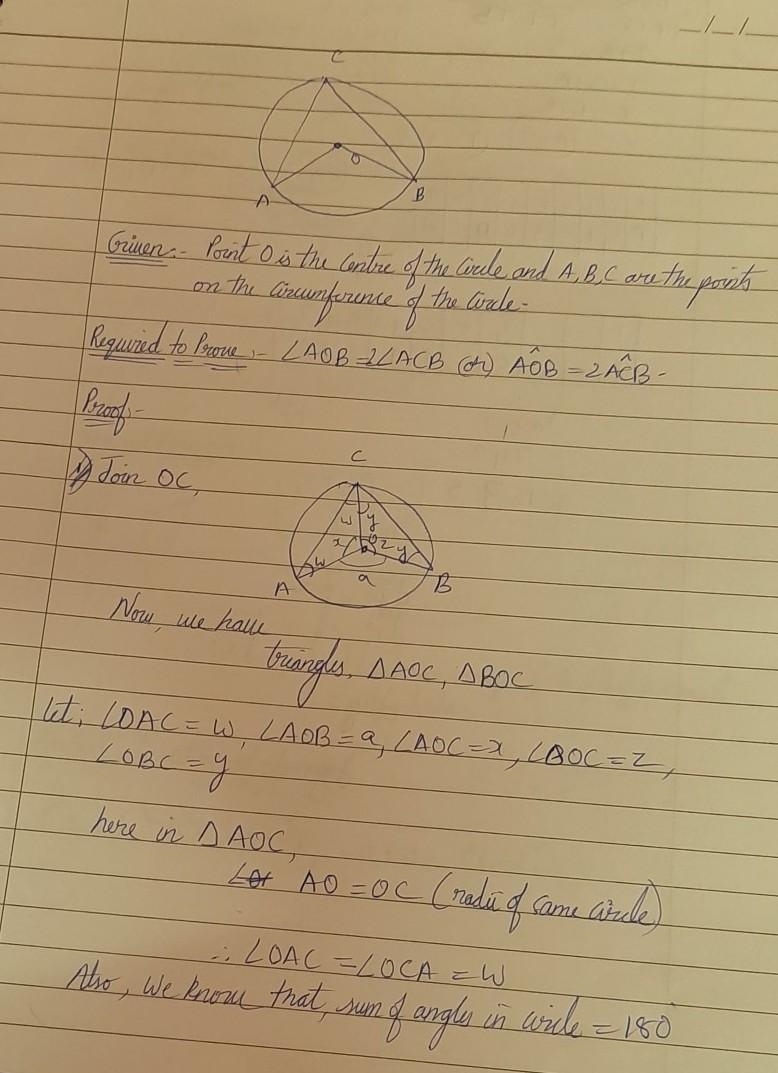 _/_/_
C
O
A
B
Given:- Point O is the Centre of the Circle and A, B, C are the points
on the Circumference of the Circle-
Required to Prove:- ∠AOB = 2∠ACB (or) AÔB = 2AĈB-
Proof:-
1) Join OC,
C
w y
x O z y
w
a
A B
Now, we have
triangles, ΔAOC, ΔBOC
let; ∠OAC = w, ∠AOB = a, ∠AOC = x, ∠BOC = z,
∠OBC = y
here in ΔAOC,
AO = OC (radii of same circle)
∴ ∠OAC = ∠OCA = w
Also, We know that, sum of angles in circle = 180°